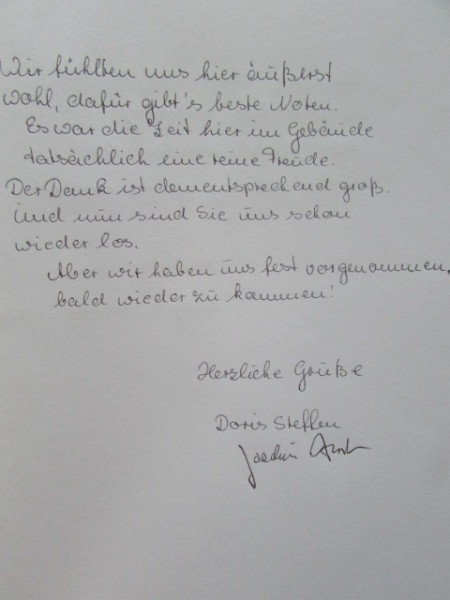 Wir fühlten uns hier äußerst
wohl, dafür gibt's beste Noten.
Es war die Zeit hier im Gebäude
tatsächlich eine reine Freude.
Der Dank ist dementsprechend groß.
Und nun sind Sie uns schon
wieder los.
Aber wir haben uns fest vorgenommen,
bald wieder zu kommen!
Herzliche Grüße
Doris Steffen